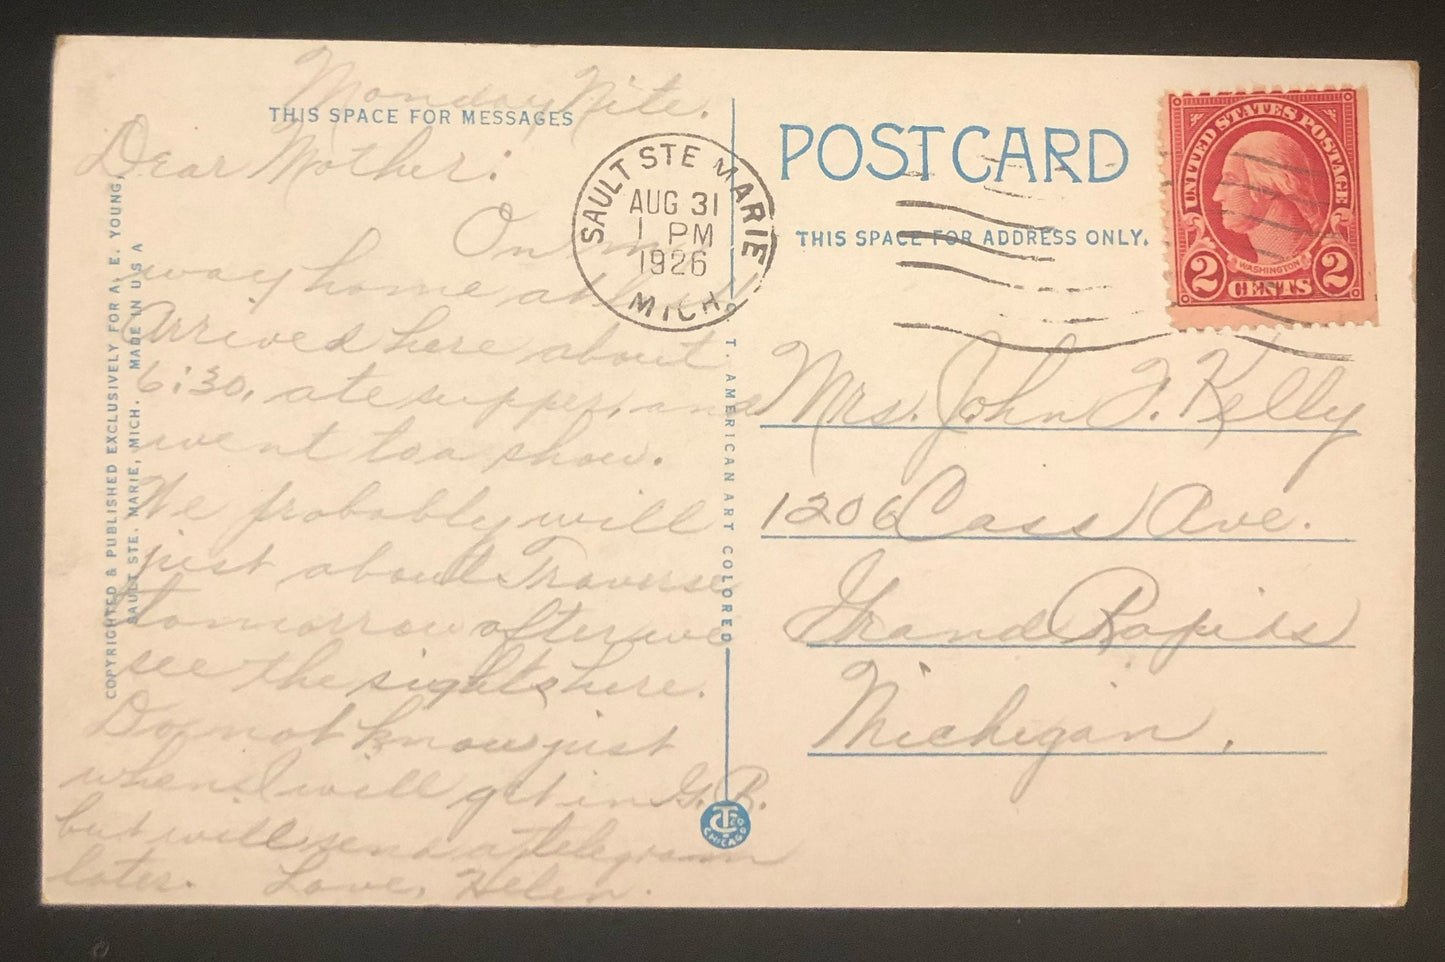 Monday Nite.
THIS SPACE FOR MESSAGES
Dear Mother:
On my
way home at last
Arrived here about
6:30, ate supper, and
went to a show.
We probably will
just about Traverse
tomorrow after we
see the sights here.
Do not know just
when I will get in G. R.
but will send a telegram
later. Love, Helen.
COPYRIGHTED & PUBLISHED EXCLUSIVELY FOR A. E. YOUNG,
SAULT STE. MARIE, MICH. MADE IN U S A
T. AMERICAN ART COLORED
C T CO
CHICAGO
SAULT STE MARIE
AUG 31
1 PM
1926
MICH.
POST CARD
THIS SPACE FOR ADDRESS ONLY.
UNITED STATES POSTAGE
WASHINGTON
2 CENTS 2
Mrs. John F. Kelly
1206 Cass Ave.
Grand Rapids
Michigan.